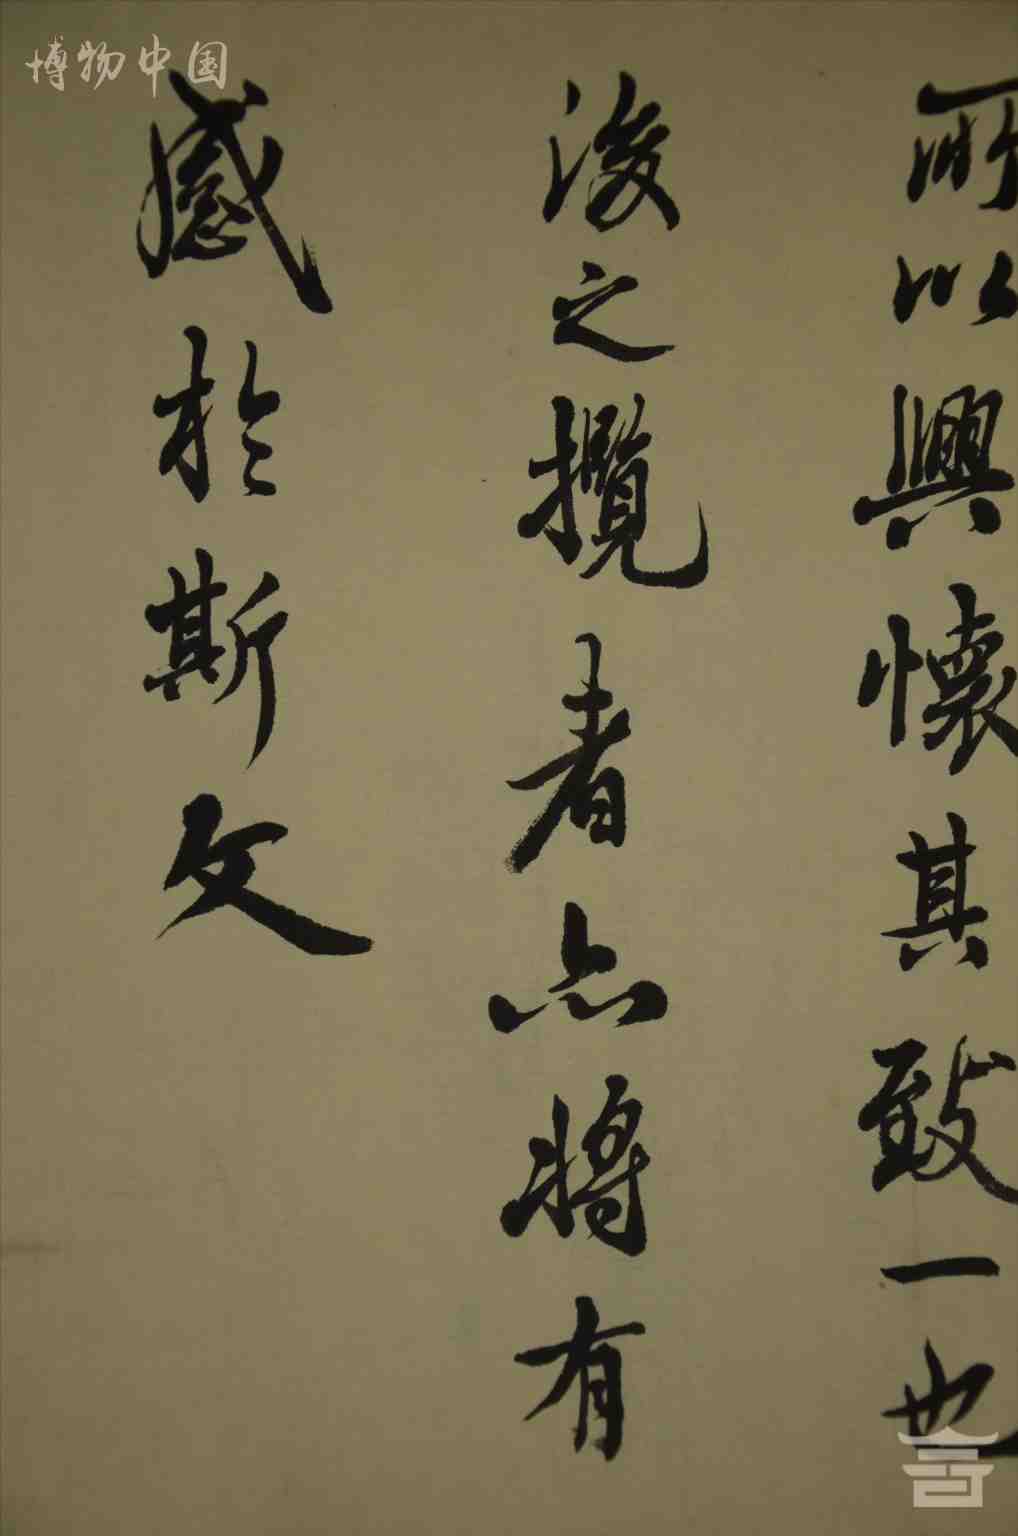 博物中国
所以興懷其致一也
後之攬者亦將有
感於斯文